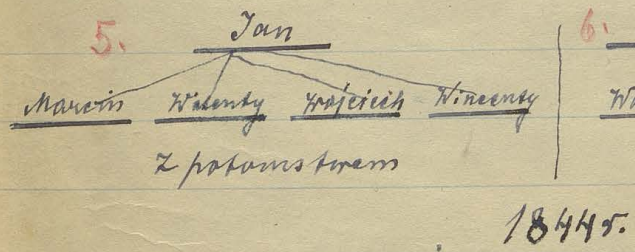 5. Jan 6.
Marcin Walenty Wojciech Wincenty
z potomstwem
1844r.